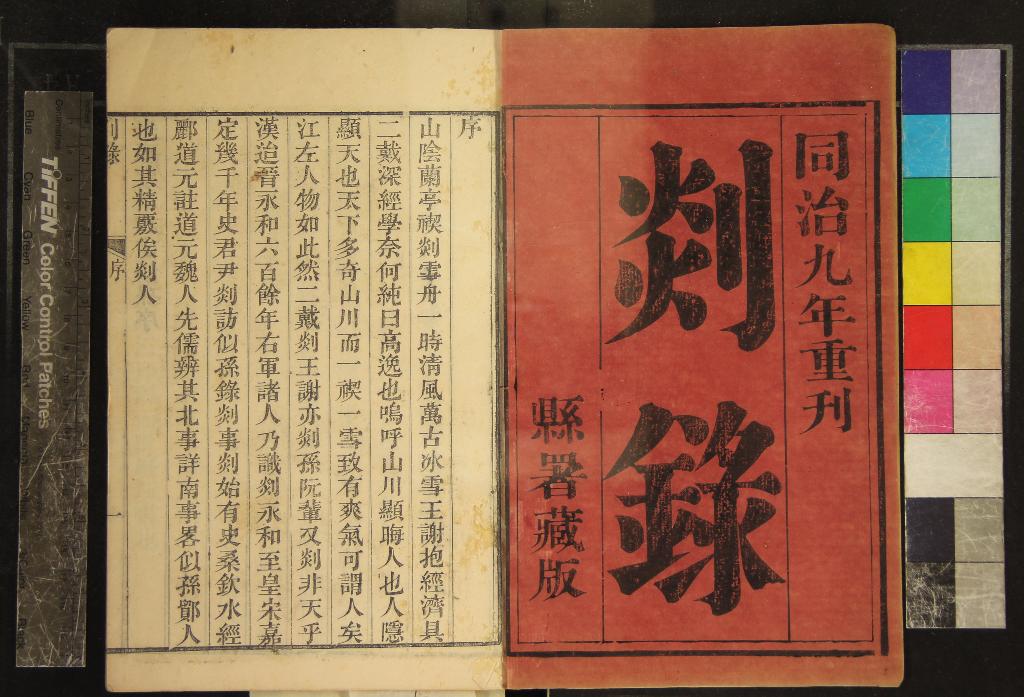 同治九年重刊
剡錄
縣署藏版
序
山陰蘭亭禊剡雪舟一時清風萬古冰雪王謝抱經濟具
二戴深經學奈何純曰高逸也嗚呼山川顯晦人也人隱
顯天也天下多奇山川而一禊一雪致有爽氣可謂人矣
江左人物如此然二戴剡王謝亦剡孫阮輩又剡非天乎
漢迨晉永和六百餘年右軍諸人乃識剡永和至皇宋嘉
定幾千年史君尹剡訪似孫錄剡事剡始有史桑欽水經
酈道元註道元魏人先儒辨其北事詳南事畧似孫鄮人
也如其精覈俟剡人
剡錄
序
一
TIFFEN Color Control Patches
Blue
Cyan
Green
Yellow
Red